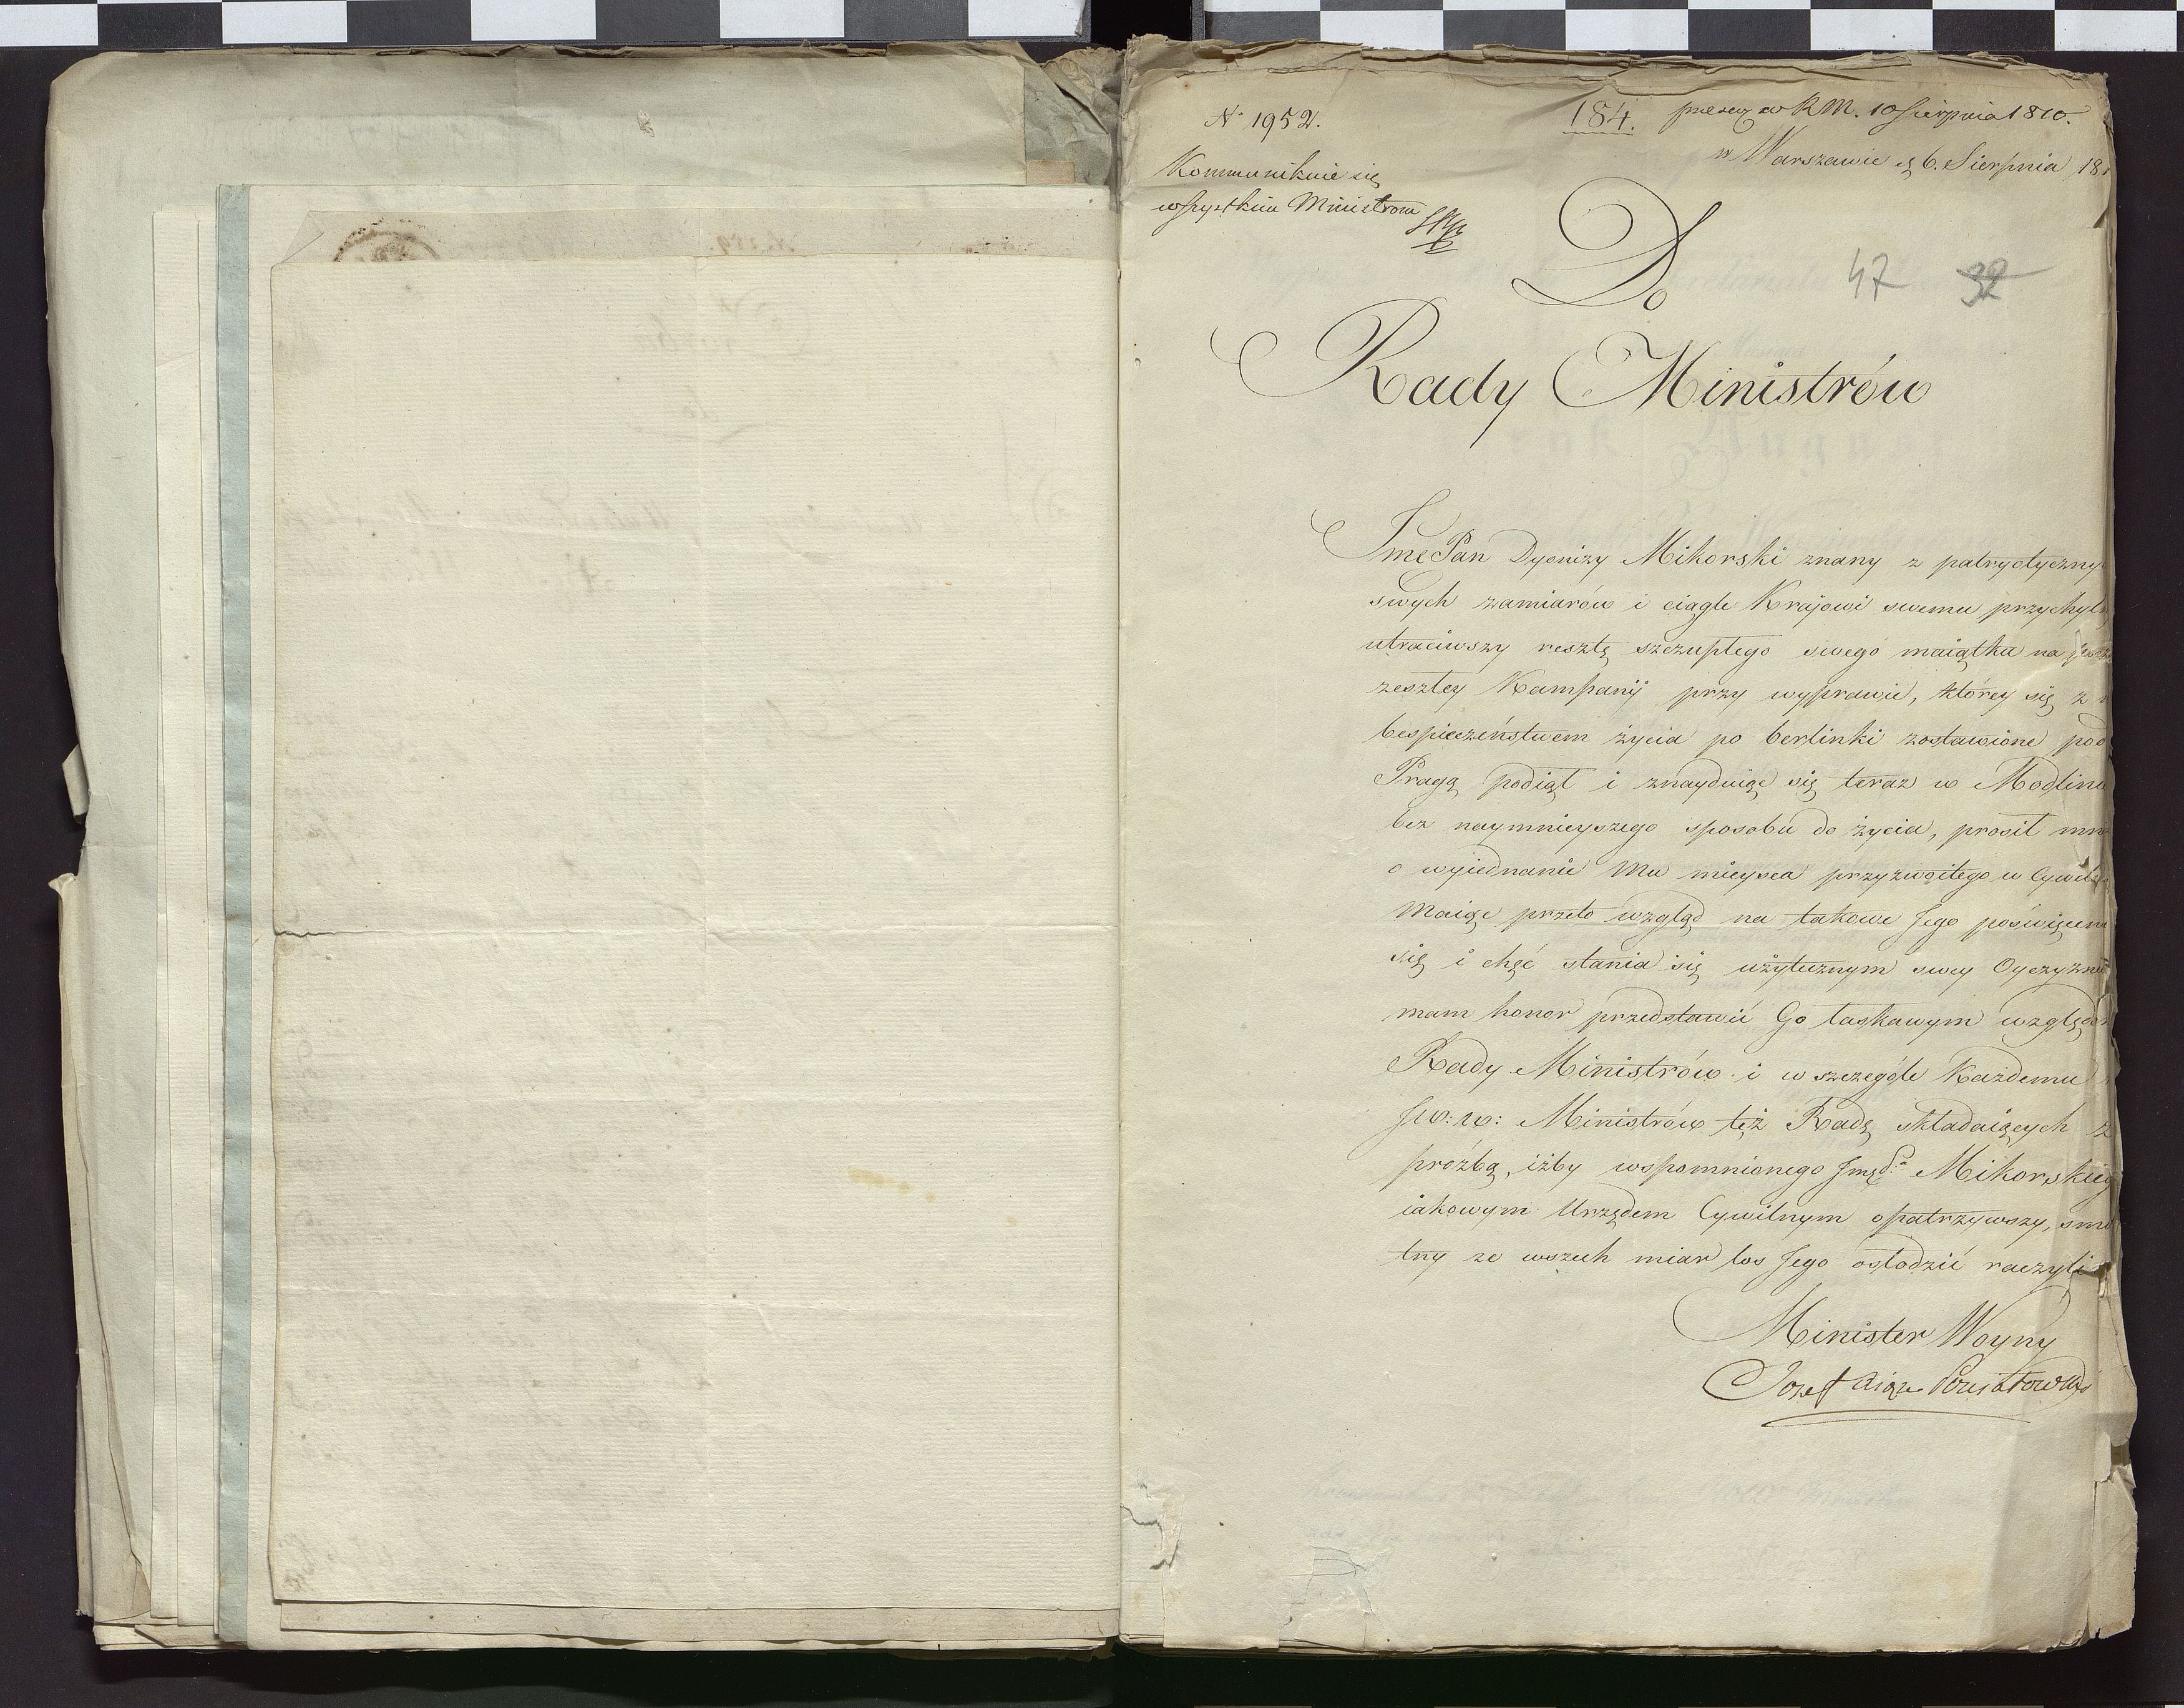 N° 1952.
184. prez: w RM. 10 Sierpnia 1810.
w Warszawie d. 6. Sierpnia 18
Kommunikuie się
wszystkim Ministrom
47 32
Do
Rady Ministrów
Jme Pan Dyonizy Mikorski znany z patryotyczny
swych zamiarów i ciągle Krajowi swemu przychyl
utraciwszy resztę szczupłego swego maiątku na
zeszłey Kampanij przy wyprawie, którey się z
bespieczeństwem życia po berlinki zostawione pod
Pragą podiął i znayduiąc się teraz w Modlin
bez naymnieyszego sposobu do życia, prosił mn
o wyiednanie Mu mieysca przyzwoitego w Cywil
Maiąc przeto wzgląd na takowe Jego poświęceni
się i chęć stania się użytecznym swey Oyczyzni
mam honor przedstawić Go łaskawym względo
Rady Ministrów i w szczególe Każdemu
JW: W: Ministrów też Radę składaiących z
proźbą, iżby wspomnionego Jmę P. Mikorskieg
iakowym Urzędem Cywilnym opatrzywszy, smu
tny ze wszech miar los Jego osłodzić raczyli
Minister Woyny
Jozef Xiąże Poniatowski